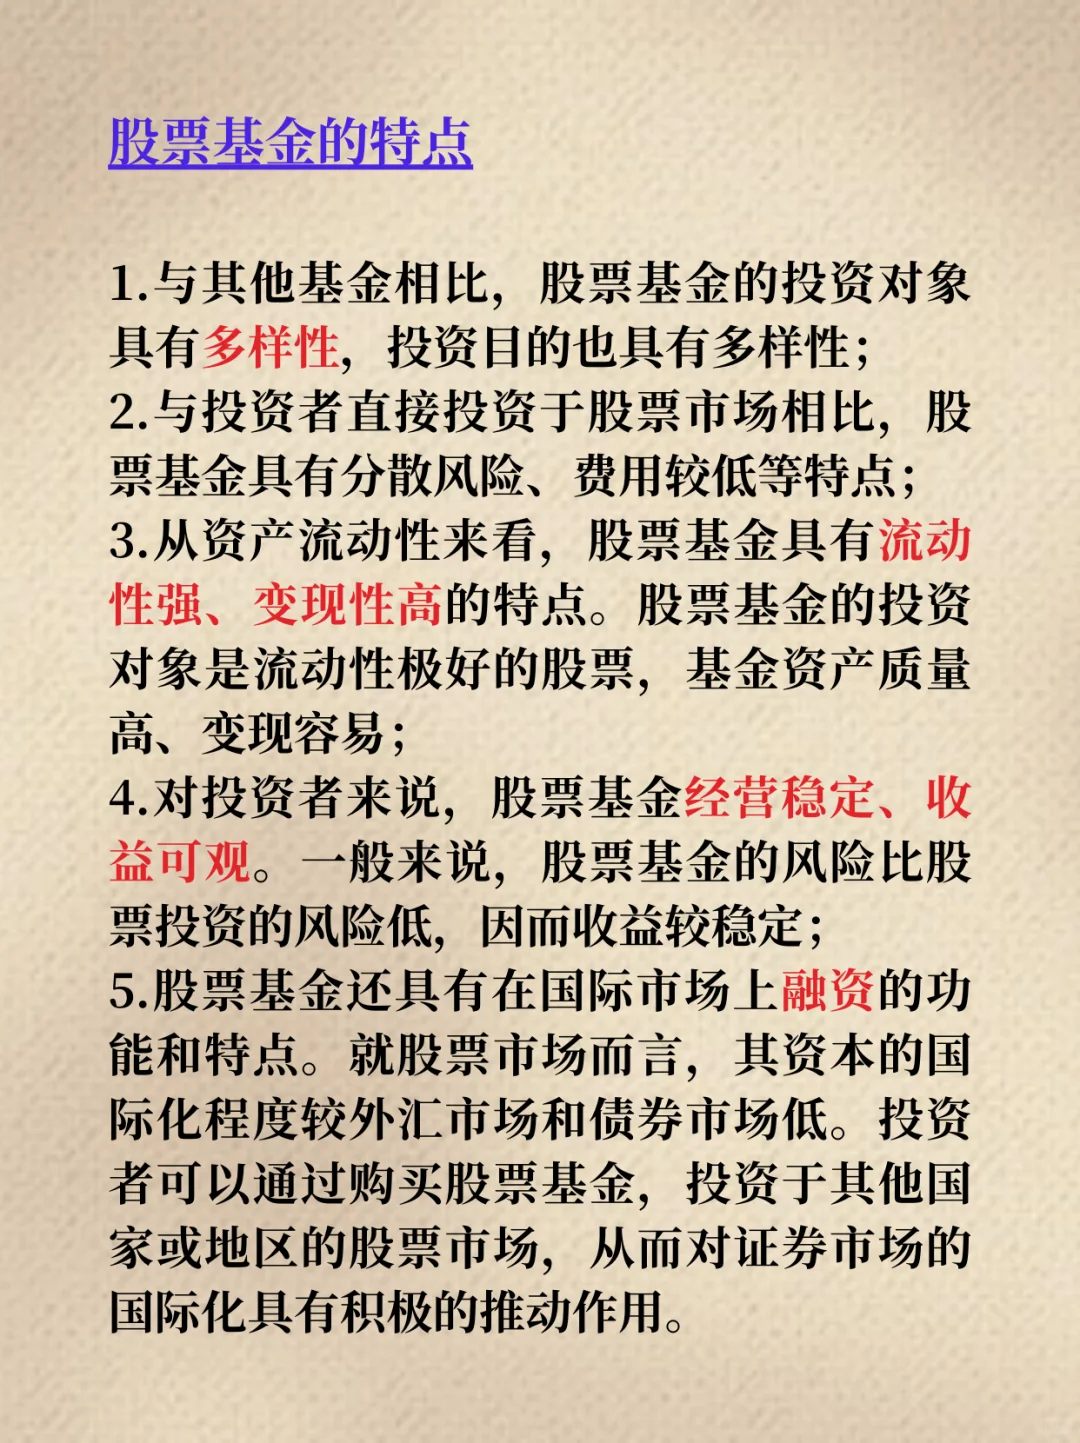 股票基金的特点
1.与其他基金相比，股票基金的投资对象
具有多样性，投资目的也具有多样性；
2.与投资者直接投资于股票市场相比，股
票基金具有分散风险、费用较低等特点；
3.从资产流动性来看，股票基金具有流动
性强、变现性高的特点。股票基金的投资
对象是流动性极好的股票，基金资产质量
高、变现容易；
4.对投资者来说，股票基金经营稳定、收
益可观。一般来说，股票基金的风险比股
票投资的风险低，因而收益较稳定；
5.股票基金还具有在国际市场上融资的功
能和特点。就股票市场而言，其资本的国
际化程度较外汇市场和债券市场低。投资
者可以通过购买股票基金，投资于其他国
家或地区的股票市场，从而对证券市场的
国际化具有积极的推动作用。